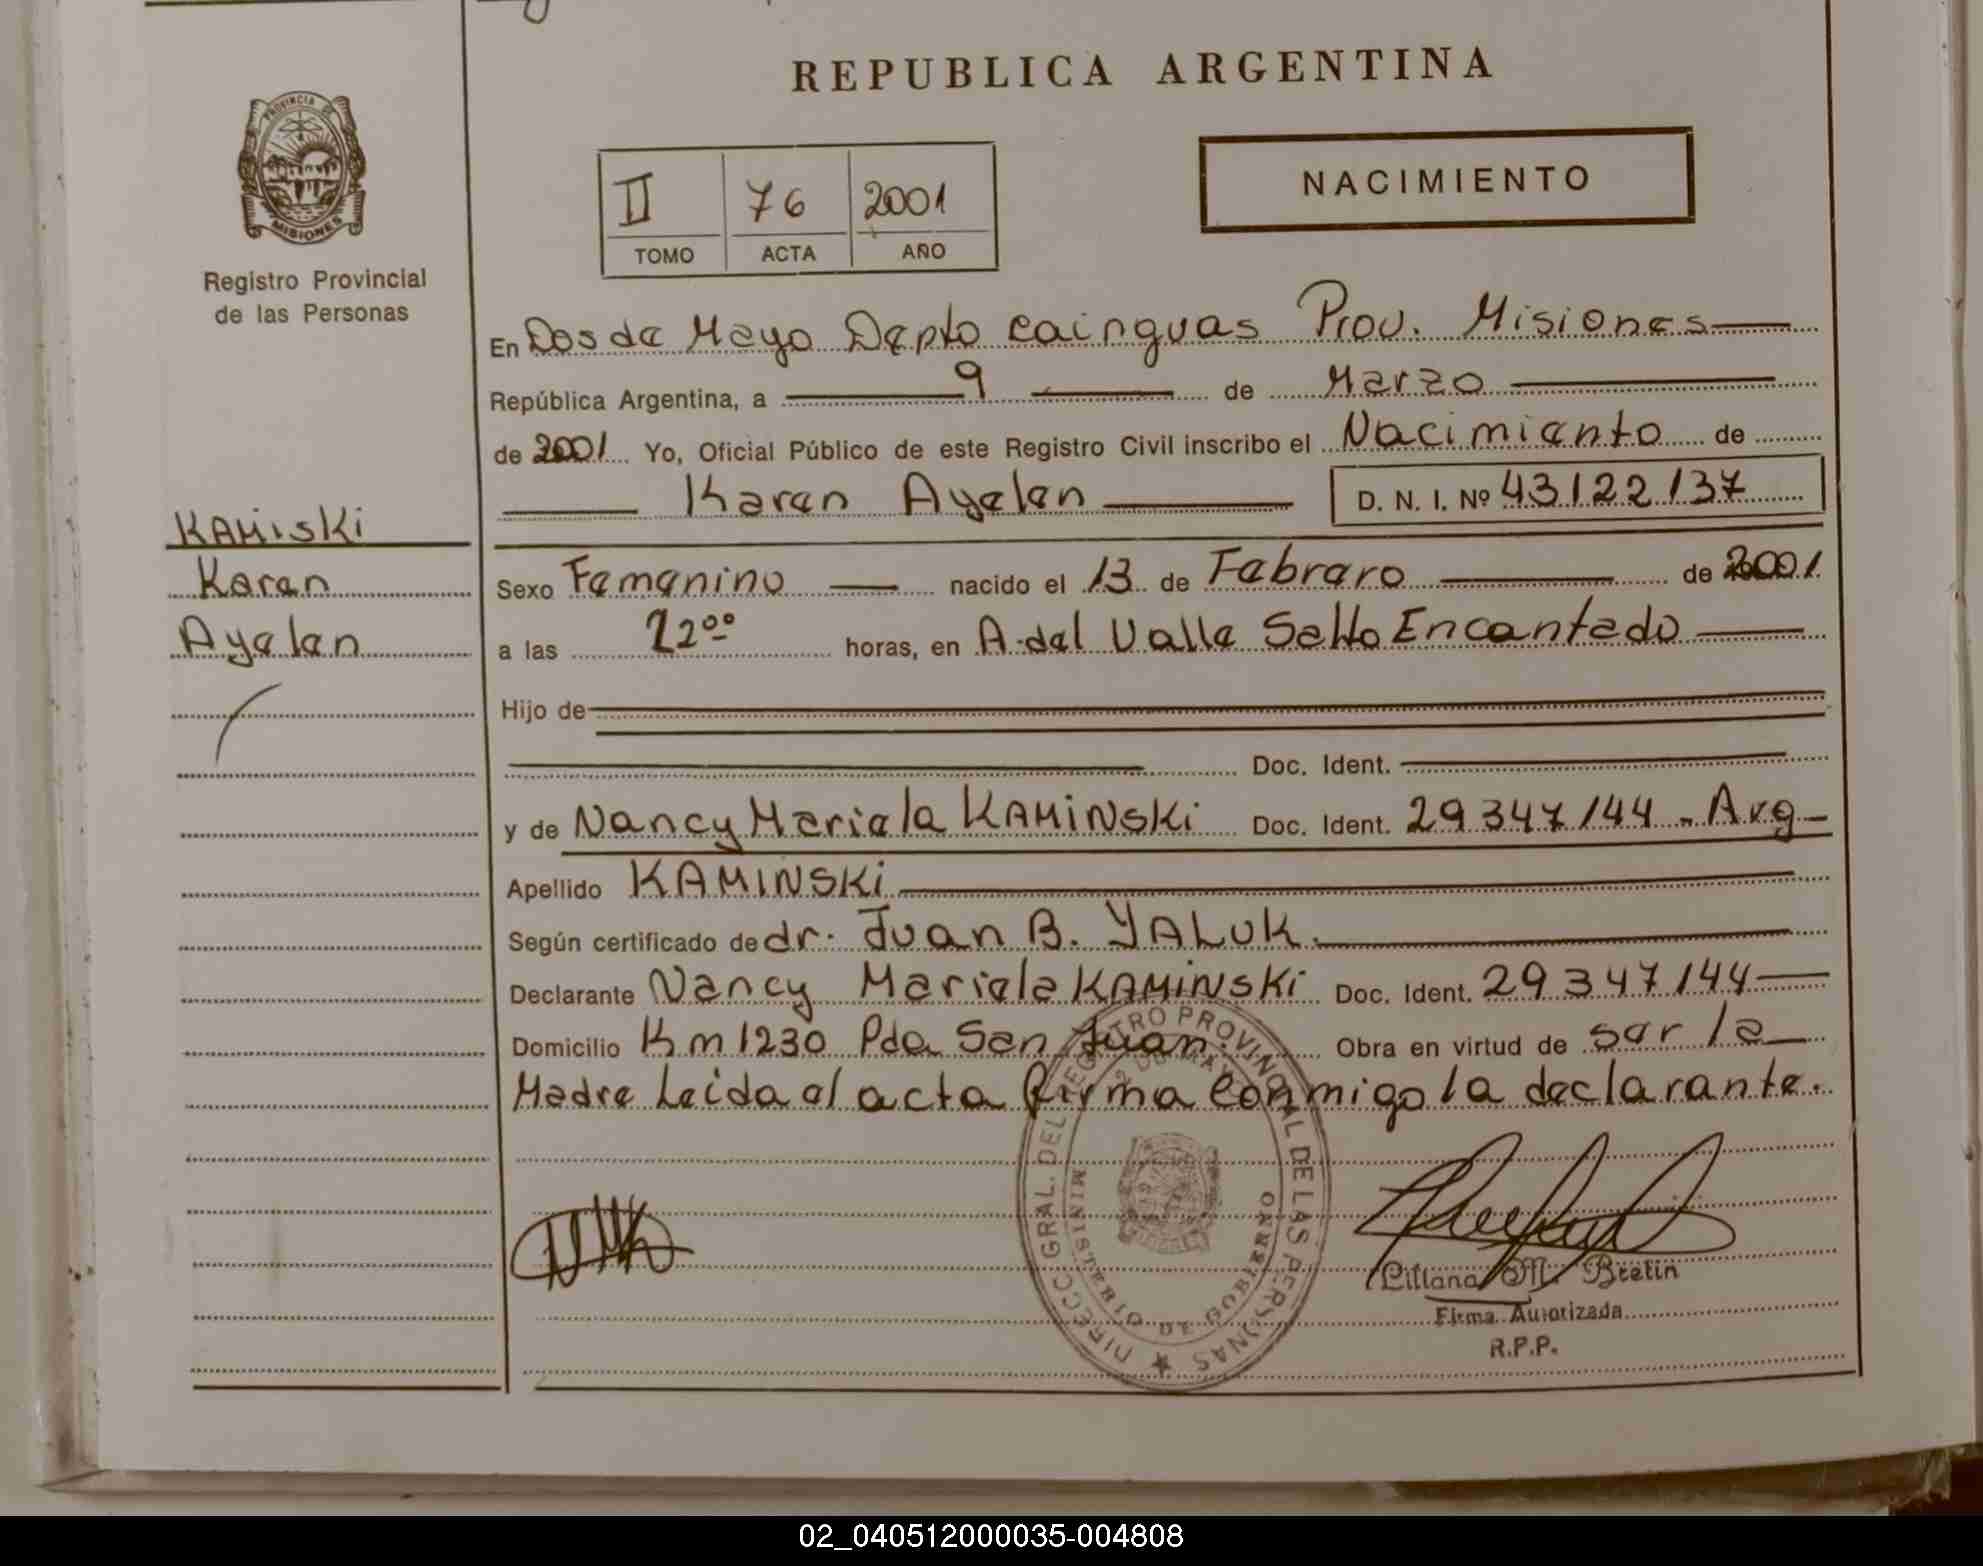 REPUBLICA ARGENTINA
PROVINCIA DE
MISIONES
Registro Provincial
de las Personas
II 76 2001
TOMO ACTA AÑO
NACIMIENTO
En Dos de Mayo Depto Cainguas Prov. Misiones
República Argentina, a 9 de Marzo
de 2001 Yo, Oficial Público de este Registro Civil inscribo el Nacimiento de
Karen Ayelen D. N. I. Nº 43122137
KAMiSKi
Karen
Ayelen
Sexo Femenino nacido el 13 de Febrero de 2001
a las 22ºº horas, en A. del Valle Salto Encantado
Hijo de
Doc. Ident.
y de Nancy Mariela KAMiNSKi Doc. Ident. 29347144 - Arg
Apellido KAMINSKi
Según certificado de dr. Juan B. YALUK.
Declarante Nancy Mariela KAMiNSKi Doc. Ident. 29347144
Domicilio Km 1230 Pda San Juan. Obra en virtud de ser la
Madre Leida el acta firma conmigo la declarante.
DIRECC GRAL. DEL REGISTRO PROVINCIAL DE LAS PERSONAS
MINISTERIO DE GOBIERNO
Liliana M. Bretin
Firma Autorizada
R.P.P.
02_040512000035-004808